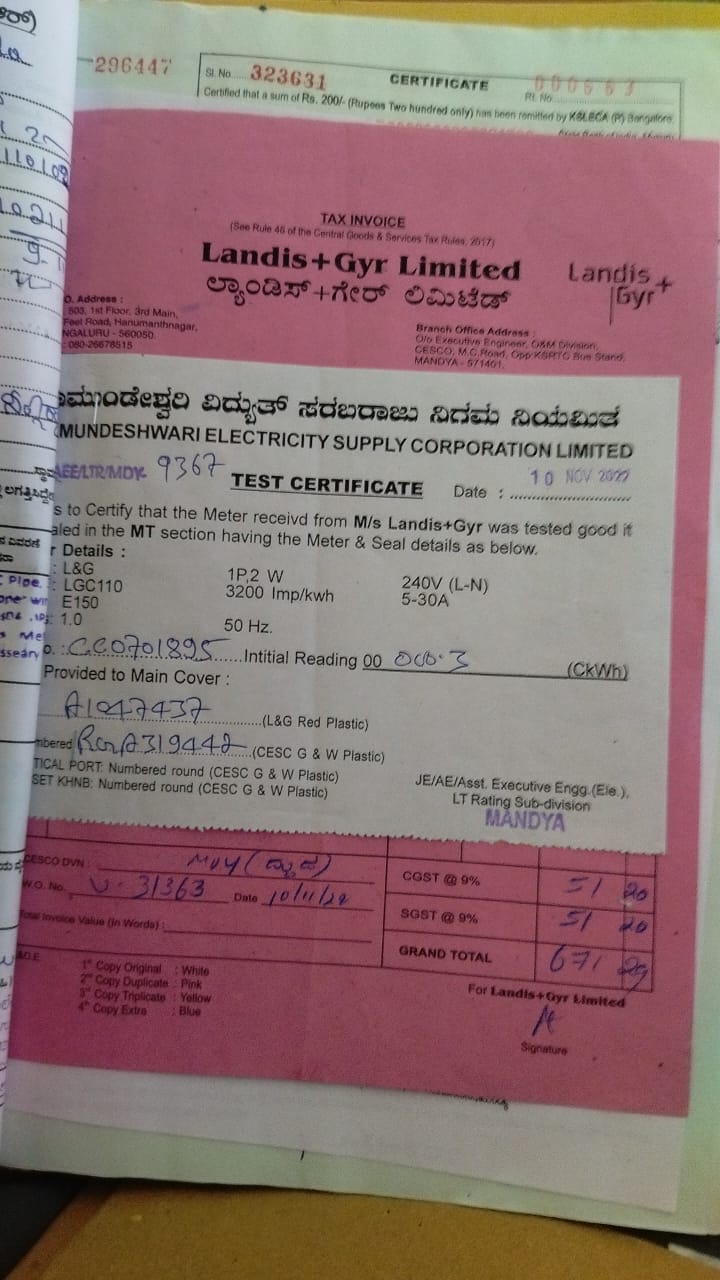 296447
Sl. No. 323631 CERTIFICATE 000663
Rl. No.
Certified that a sum of Rs. 200/- (Rupees Two hundred only) has been remitted by KSLECA (R) Bangalore,
TAX INVOICE
(See Rule 46 of the Central Goods & Services Tax Rules, 2017)
Landis+Gyr Limited
Landis+
Gyr
ಲ್ಯಾಂಡಿಸ್+ಗೇರ್ ಲಿಮಿಟೆಡ್
O. Address :
503, 1st Floor, 3rd Main,
Feet Road, Hanumanthnagar,
NGALURU - 560050.
: 080-26678515
Branch Office Address :
O/o Executive Engineer, O&M Division,
CESCO, M.C.Road, Opp.KSRTC Bus Stand,
MANDYA - 571401.
ಾಮುಂಡೇಶ್ವರಿ ವಿದ್ಯುತ್ ಸರಬರಾಜು ನಿಗಮ ನಿಯಮಿತ
MUNDESHWARI ELECTRICITY SUPPLY CORPORATION LIMITED
AEE/LTR/MDY- 9367
TEST CERTIFICATE
Date : 10 NOV 2022
s to Certify that the Meter receivd from M/s Landis+Gyr was tested good it
aled in the MT section having the Meter & Seal details as below.
r Details :
: L&G 1P,2 W 240V (L-N)
: LGC110 3200 Imp/kwh 5-30A
E150
: 1.0 50 Hz.
o. : CC0701895 Intitial Reading 00 000.3 (CkWh)
Provided to Main Cover :
A1047437 (L&G Red Plastic)
mbered A319442 (CESC G & W Plastic)
TICAL PORT: Numbered round (CESC G & W Plastic)
SET KHNB: Numbered round (CESC G & W Plastic)
JE/AE/Asst. Executive Engg.(Ele.),
LT Rating Sub-division
MANDYA
CESCO DVN :
W.O. No. 31363 Date 10/11/22
Total Invoice Value (in Words) :
CGST @ 9% 51 20
SGST @ 9% 51 20
GRAND TOTAL 671 29
1st Copy Original : White
2nd Copy Duplicate : Pink
3rd Copy Triplicate : Yellow
4th Copy Extra : Blue
For Landis+Gyr Limited
Signature